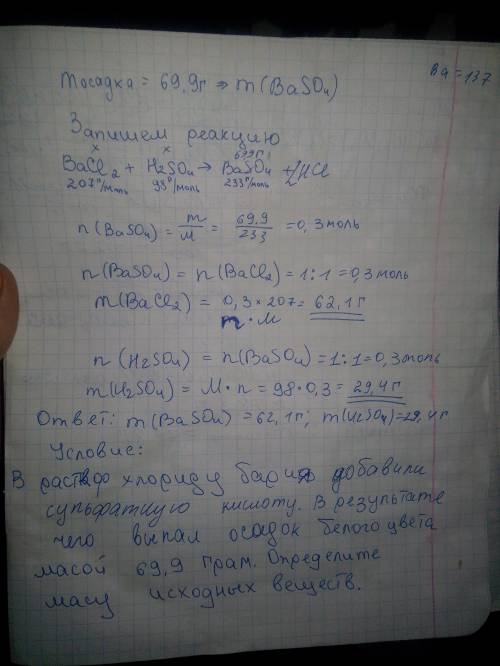 Ba = 137
mосадка = 69,9г ⇒ m(BaSO₄)
Запишем реакцию
x x 69,9г
BaCl₂ + H₂SO₄ → BaSO₄ + 2HCl
207г/моль 98г/моль 233г/моль
n(BaSO₄) = m/M = 69,9/233 = 0,3моль
n(BaSO₄) = n(BaCl₂) = 1:1 = 0,3моль
m(BaCl₂) = 0,3 × 207 = 62,1г
n · M
n (H₂SO₄) = n(BaSO₄) = 1:1 = 0,3моль
m(H₂SO₄) = M · n = 98 · 0,3 = 29,4г
Ответ: m(BaSO₄) = 62,1г; m(H₂SO₄) = 29,4г
Условие:
В раствор хлориду бария добавили
сульфатную кислоту. В результате
чего выпал осадок белого цвета
масой 69,9 грам. Определите
масу исходных веществ.